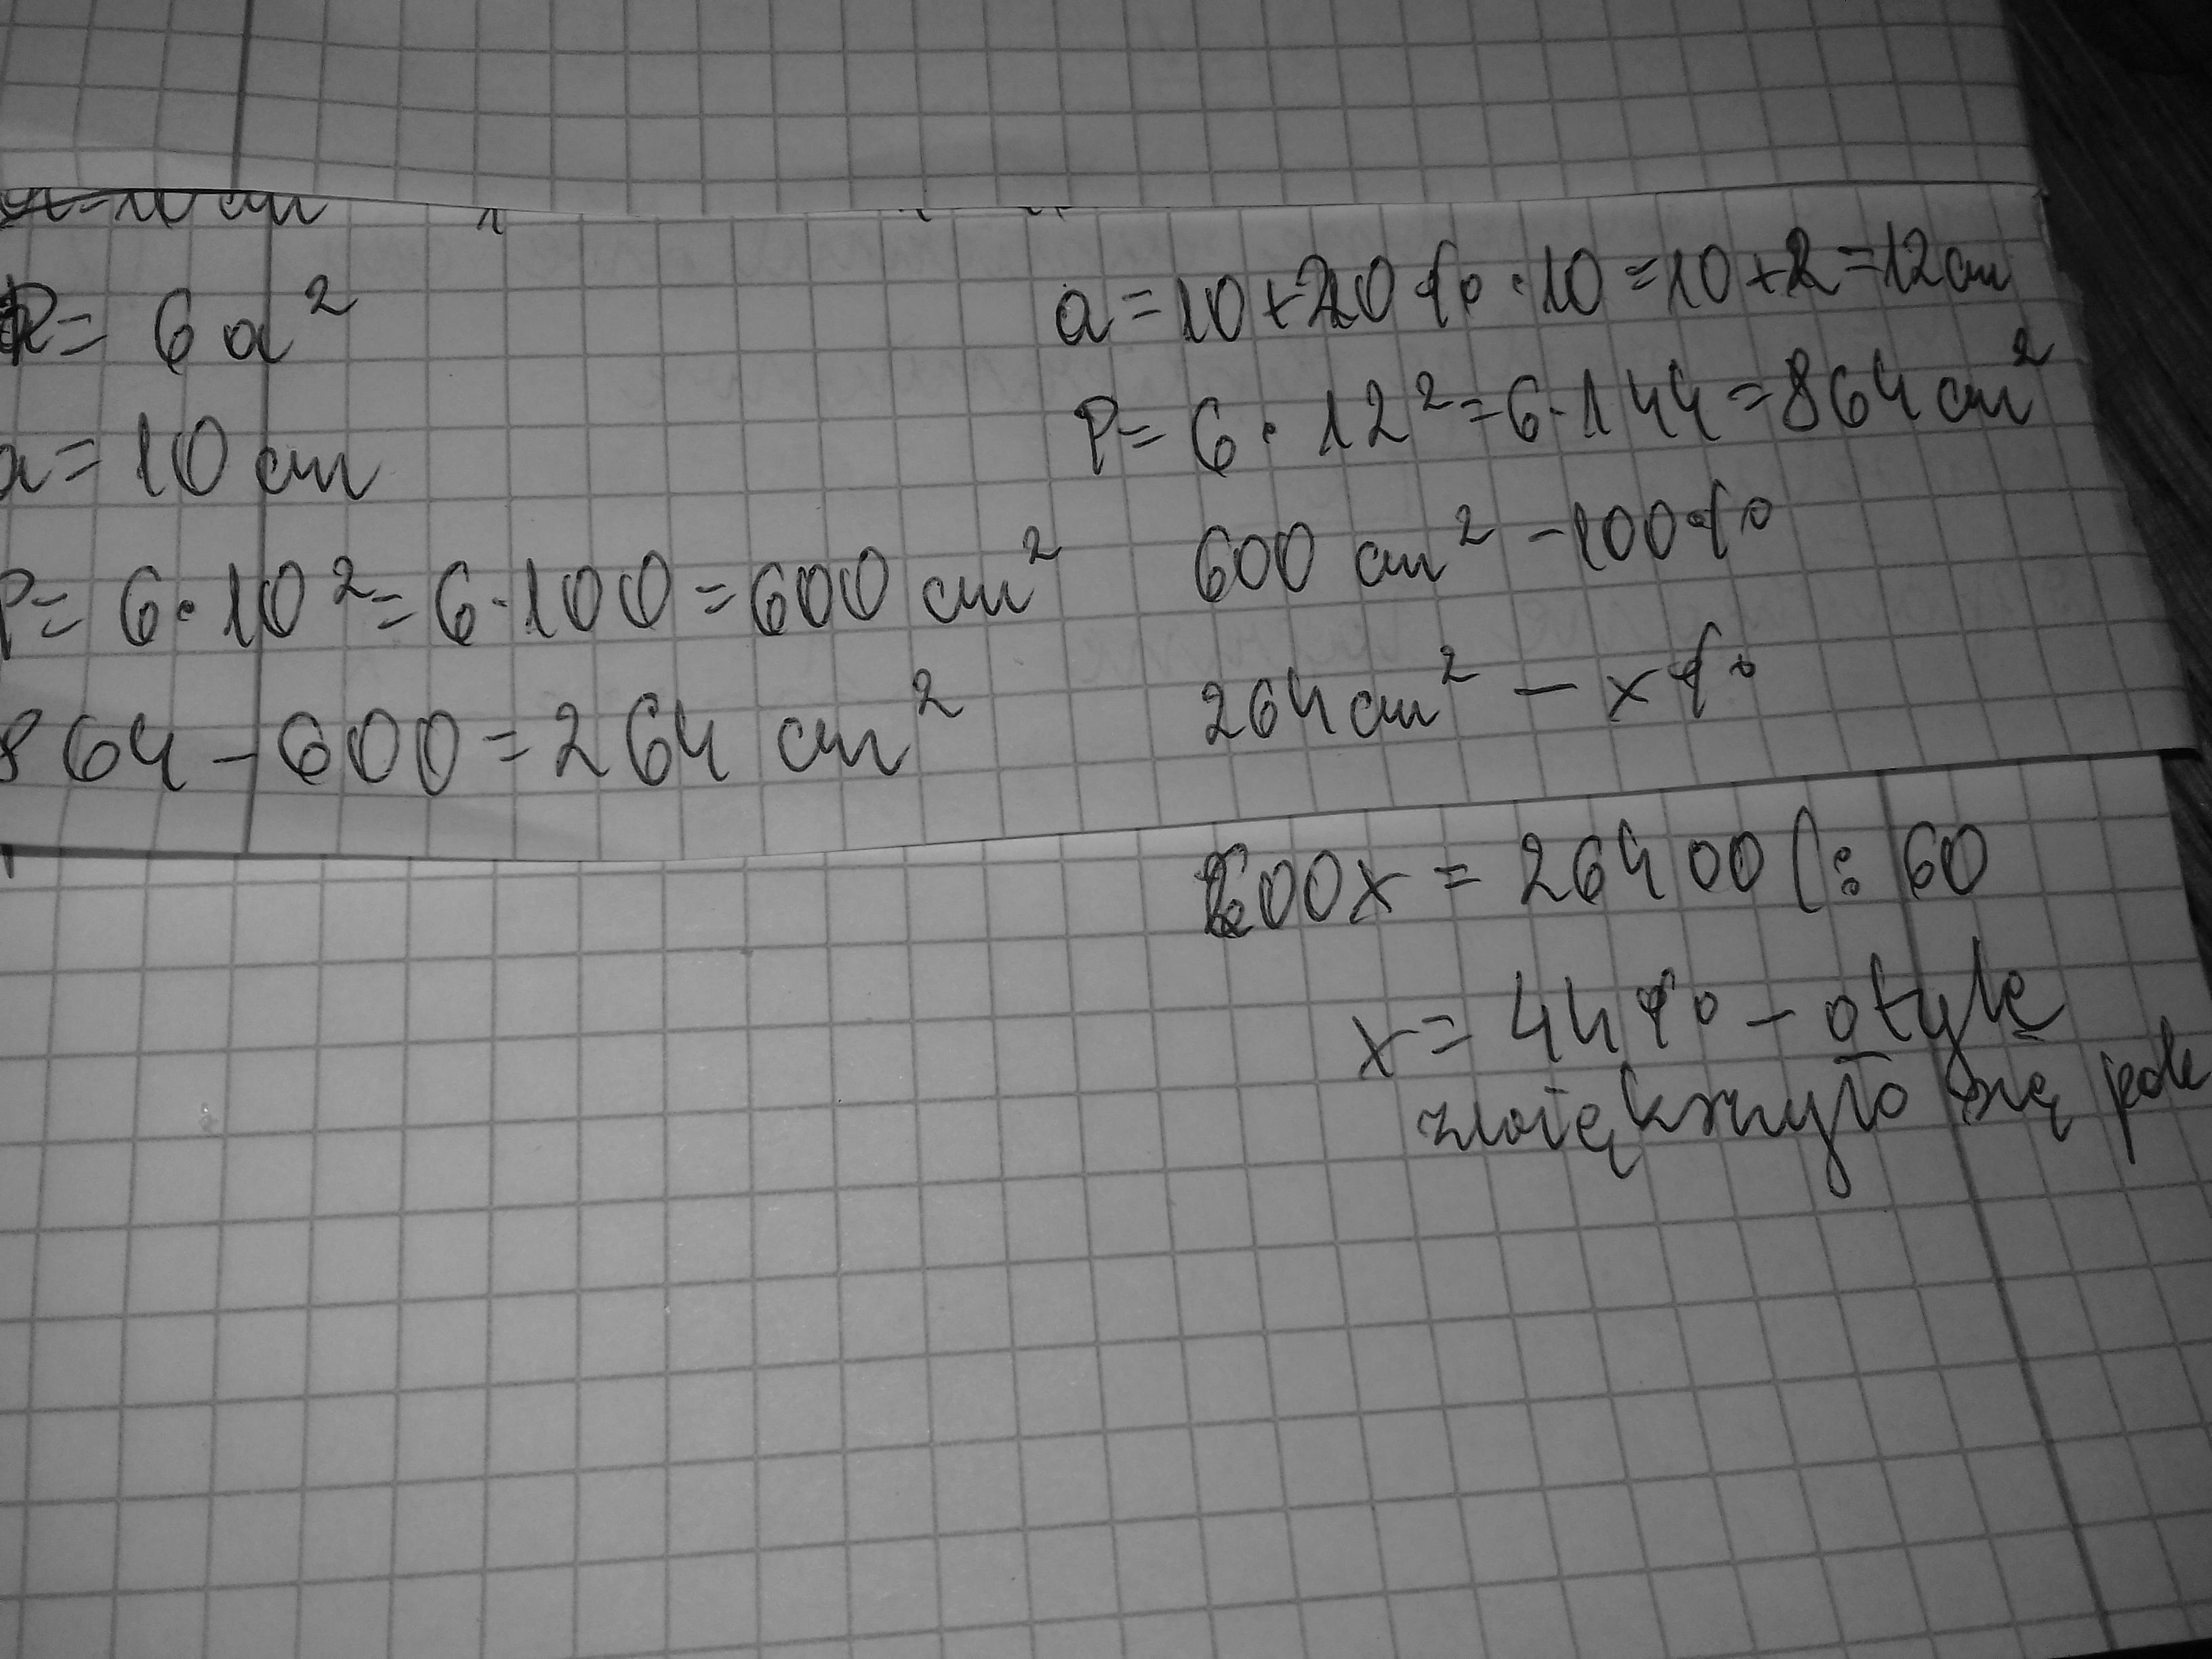 a=10 cm
P= 6a²
a=10 cm
P= 6·10²=6·100=600 cm²
864-600=264 cm²
a=10+20%·10=10+2=12cm
P= 6·12²=6·144=864cm²
600 cm² -100%
264cm² - x%
600x = 26400 (: 60
x= 44% - o tyle
zwiększyło się pole